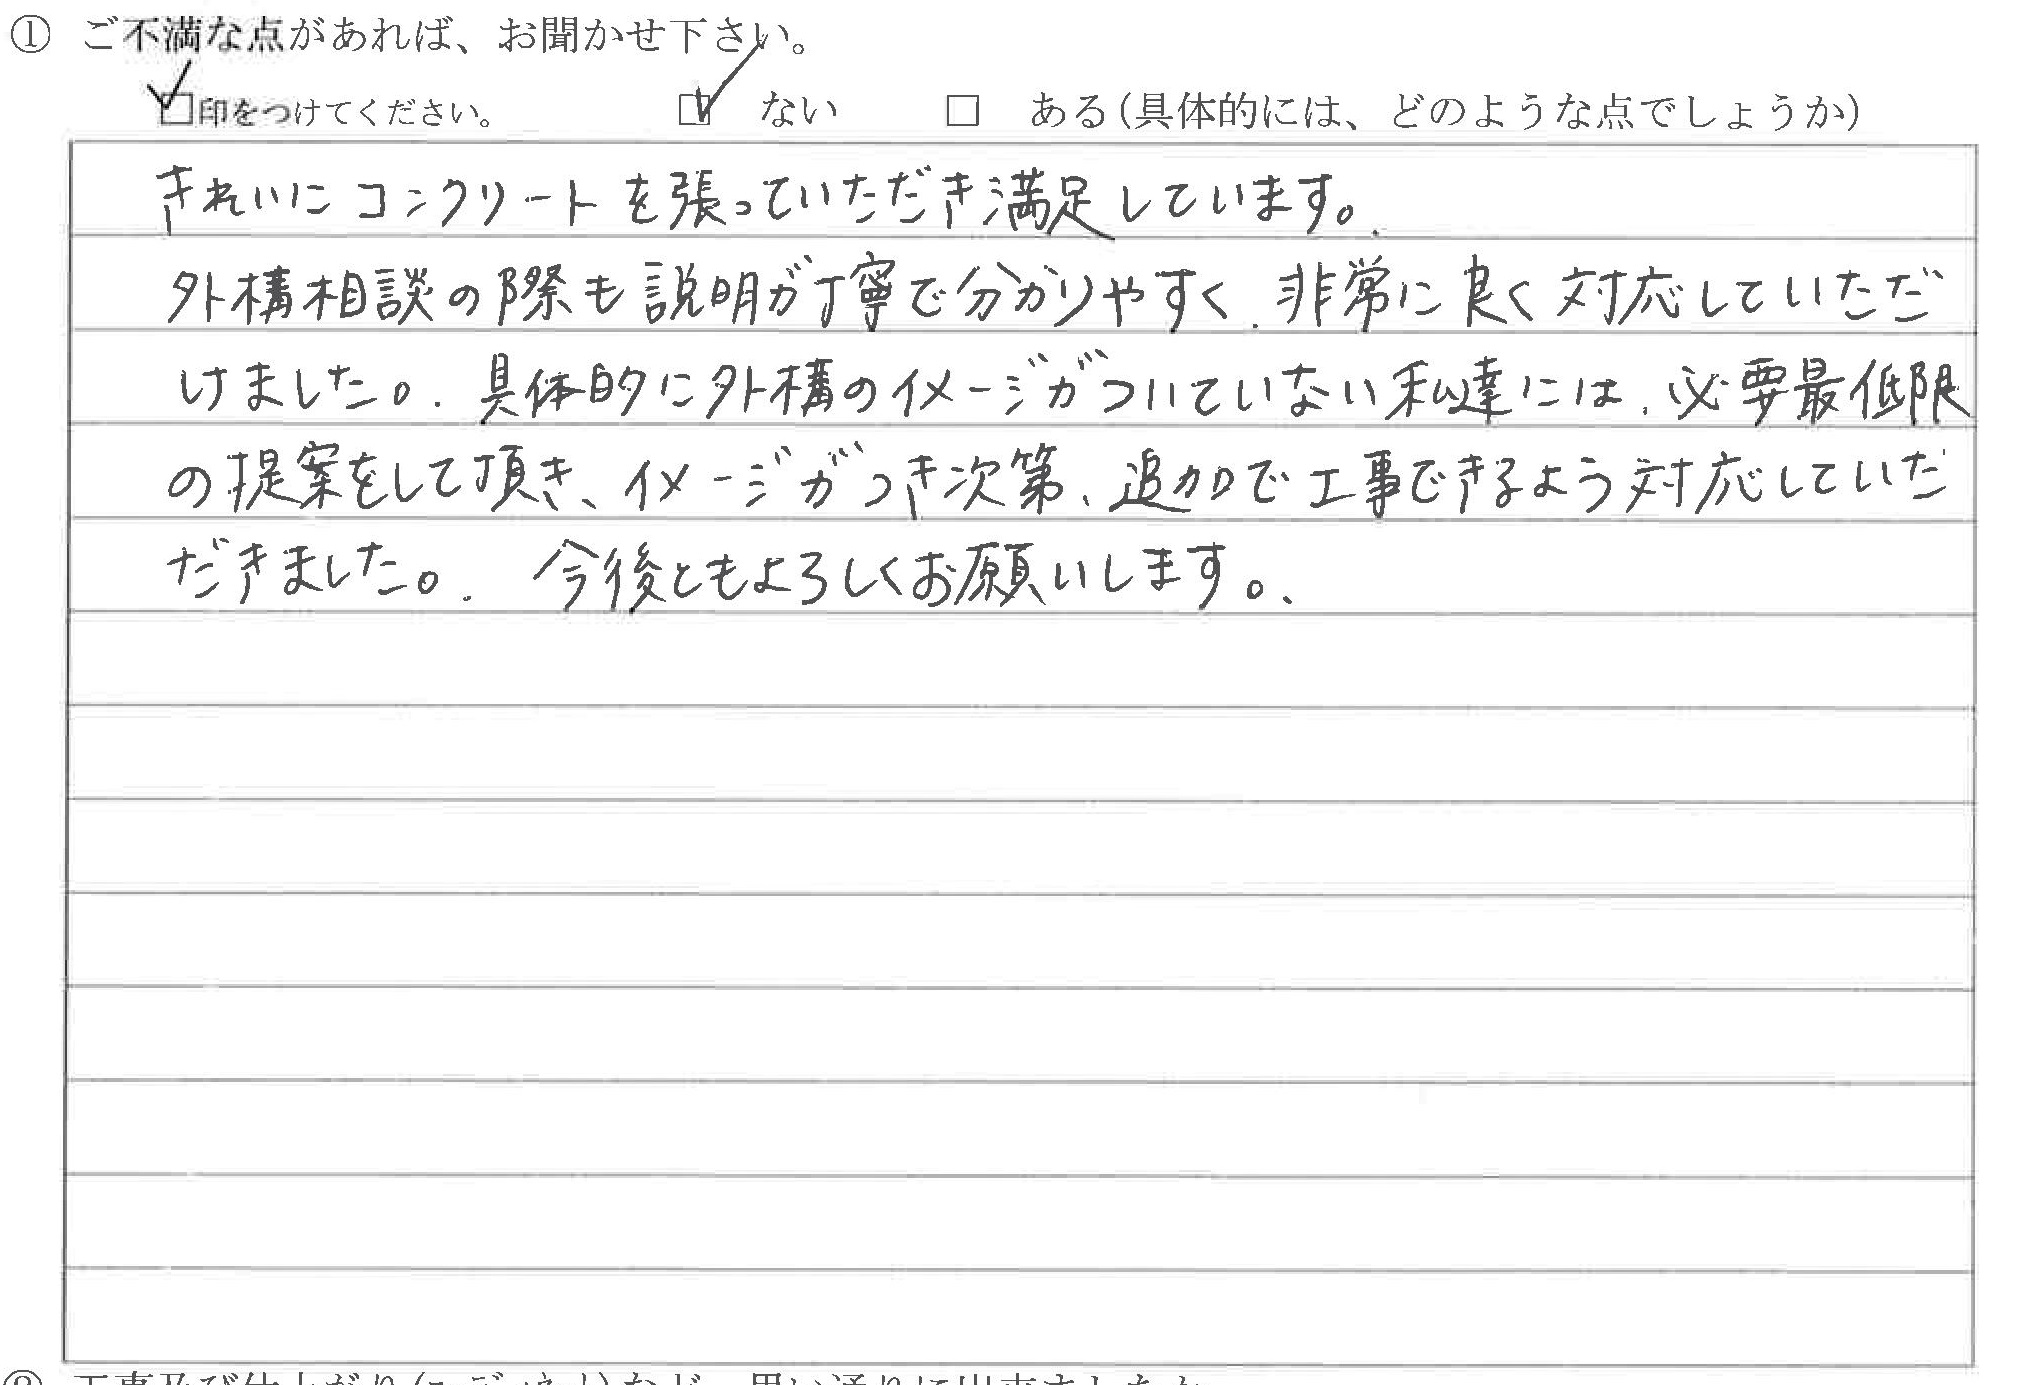 ① ご不満な点があれば、お聞かせ下さい。
☑印をつけてください。 ☑ ない □ ある(具体的には、どのような点でしょうか)
きれいにコンクリートを張っていただき満足しています。
外構相談の際も説明が丁寧で分かりやすく、非常に良く対応していただ
けました。具体的に外構のイメージがついていない私達には、必要最低限
の提案をして頂き、イメージがつき次第、追加で工事できるよう対応していた
だきました。 今後ともよろしくお願いします。